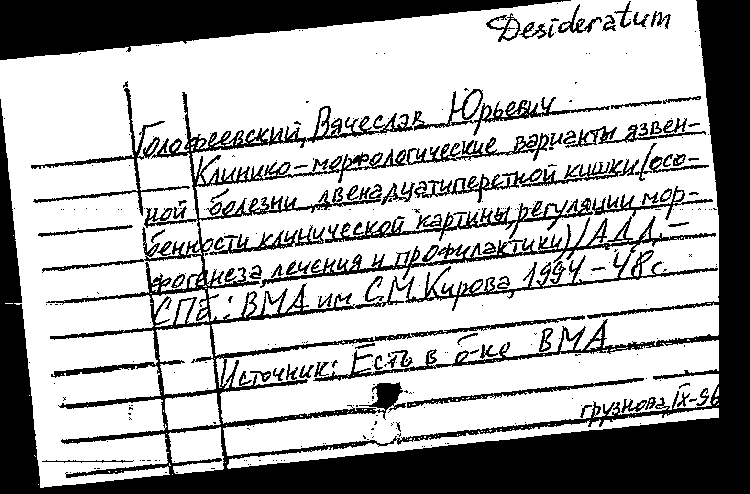 Desideratum
Голофеевский, Вячеслав Юрьевич
Клинико-морфологические варианты язвен-
ной болезни двенадцатиперстной кишки (осо-
бенности клинической картины, регуляции мор-
фогенеза, лечения и профилактики) / А.Д.Д. -
СПб.: ВМА им. С.М. Кирова, 1994. - 48 с.
Источник: Есть в б-ке ВМА
грузнова, IX-96